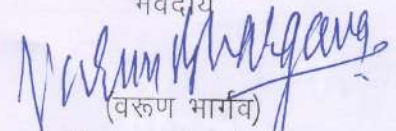 भवदीय
Varun Bhargava
(वरूण भार्गव)